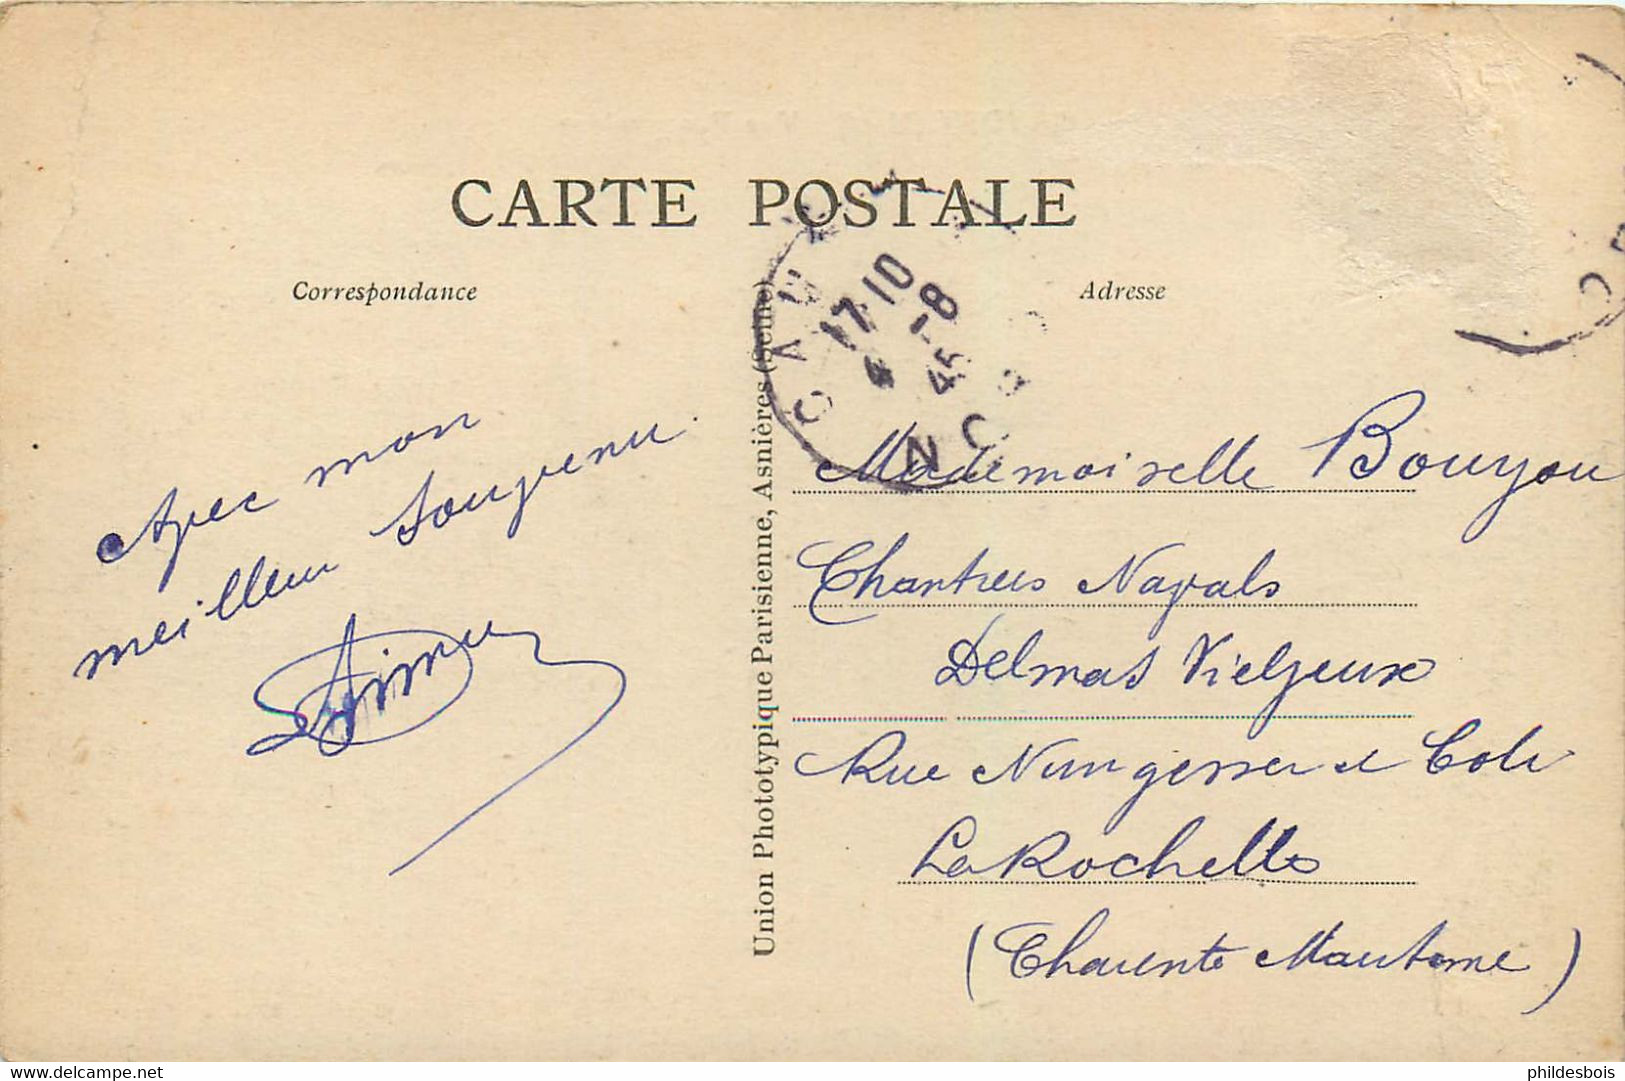 CARTE POSTALE
Correspondance
Adresse
17-10
4-8
45
Avec mon
meilleur souvenir.
Union Phototypique Parisienne, Asnières (Seine)
Mademoiselle Bouyou
Chantiers Navals
Delmas Vieljeux
Rue Nungesser et Coli
La Rochelle
(Charente Maritime)
www.delcampe.net
phildesbois